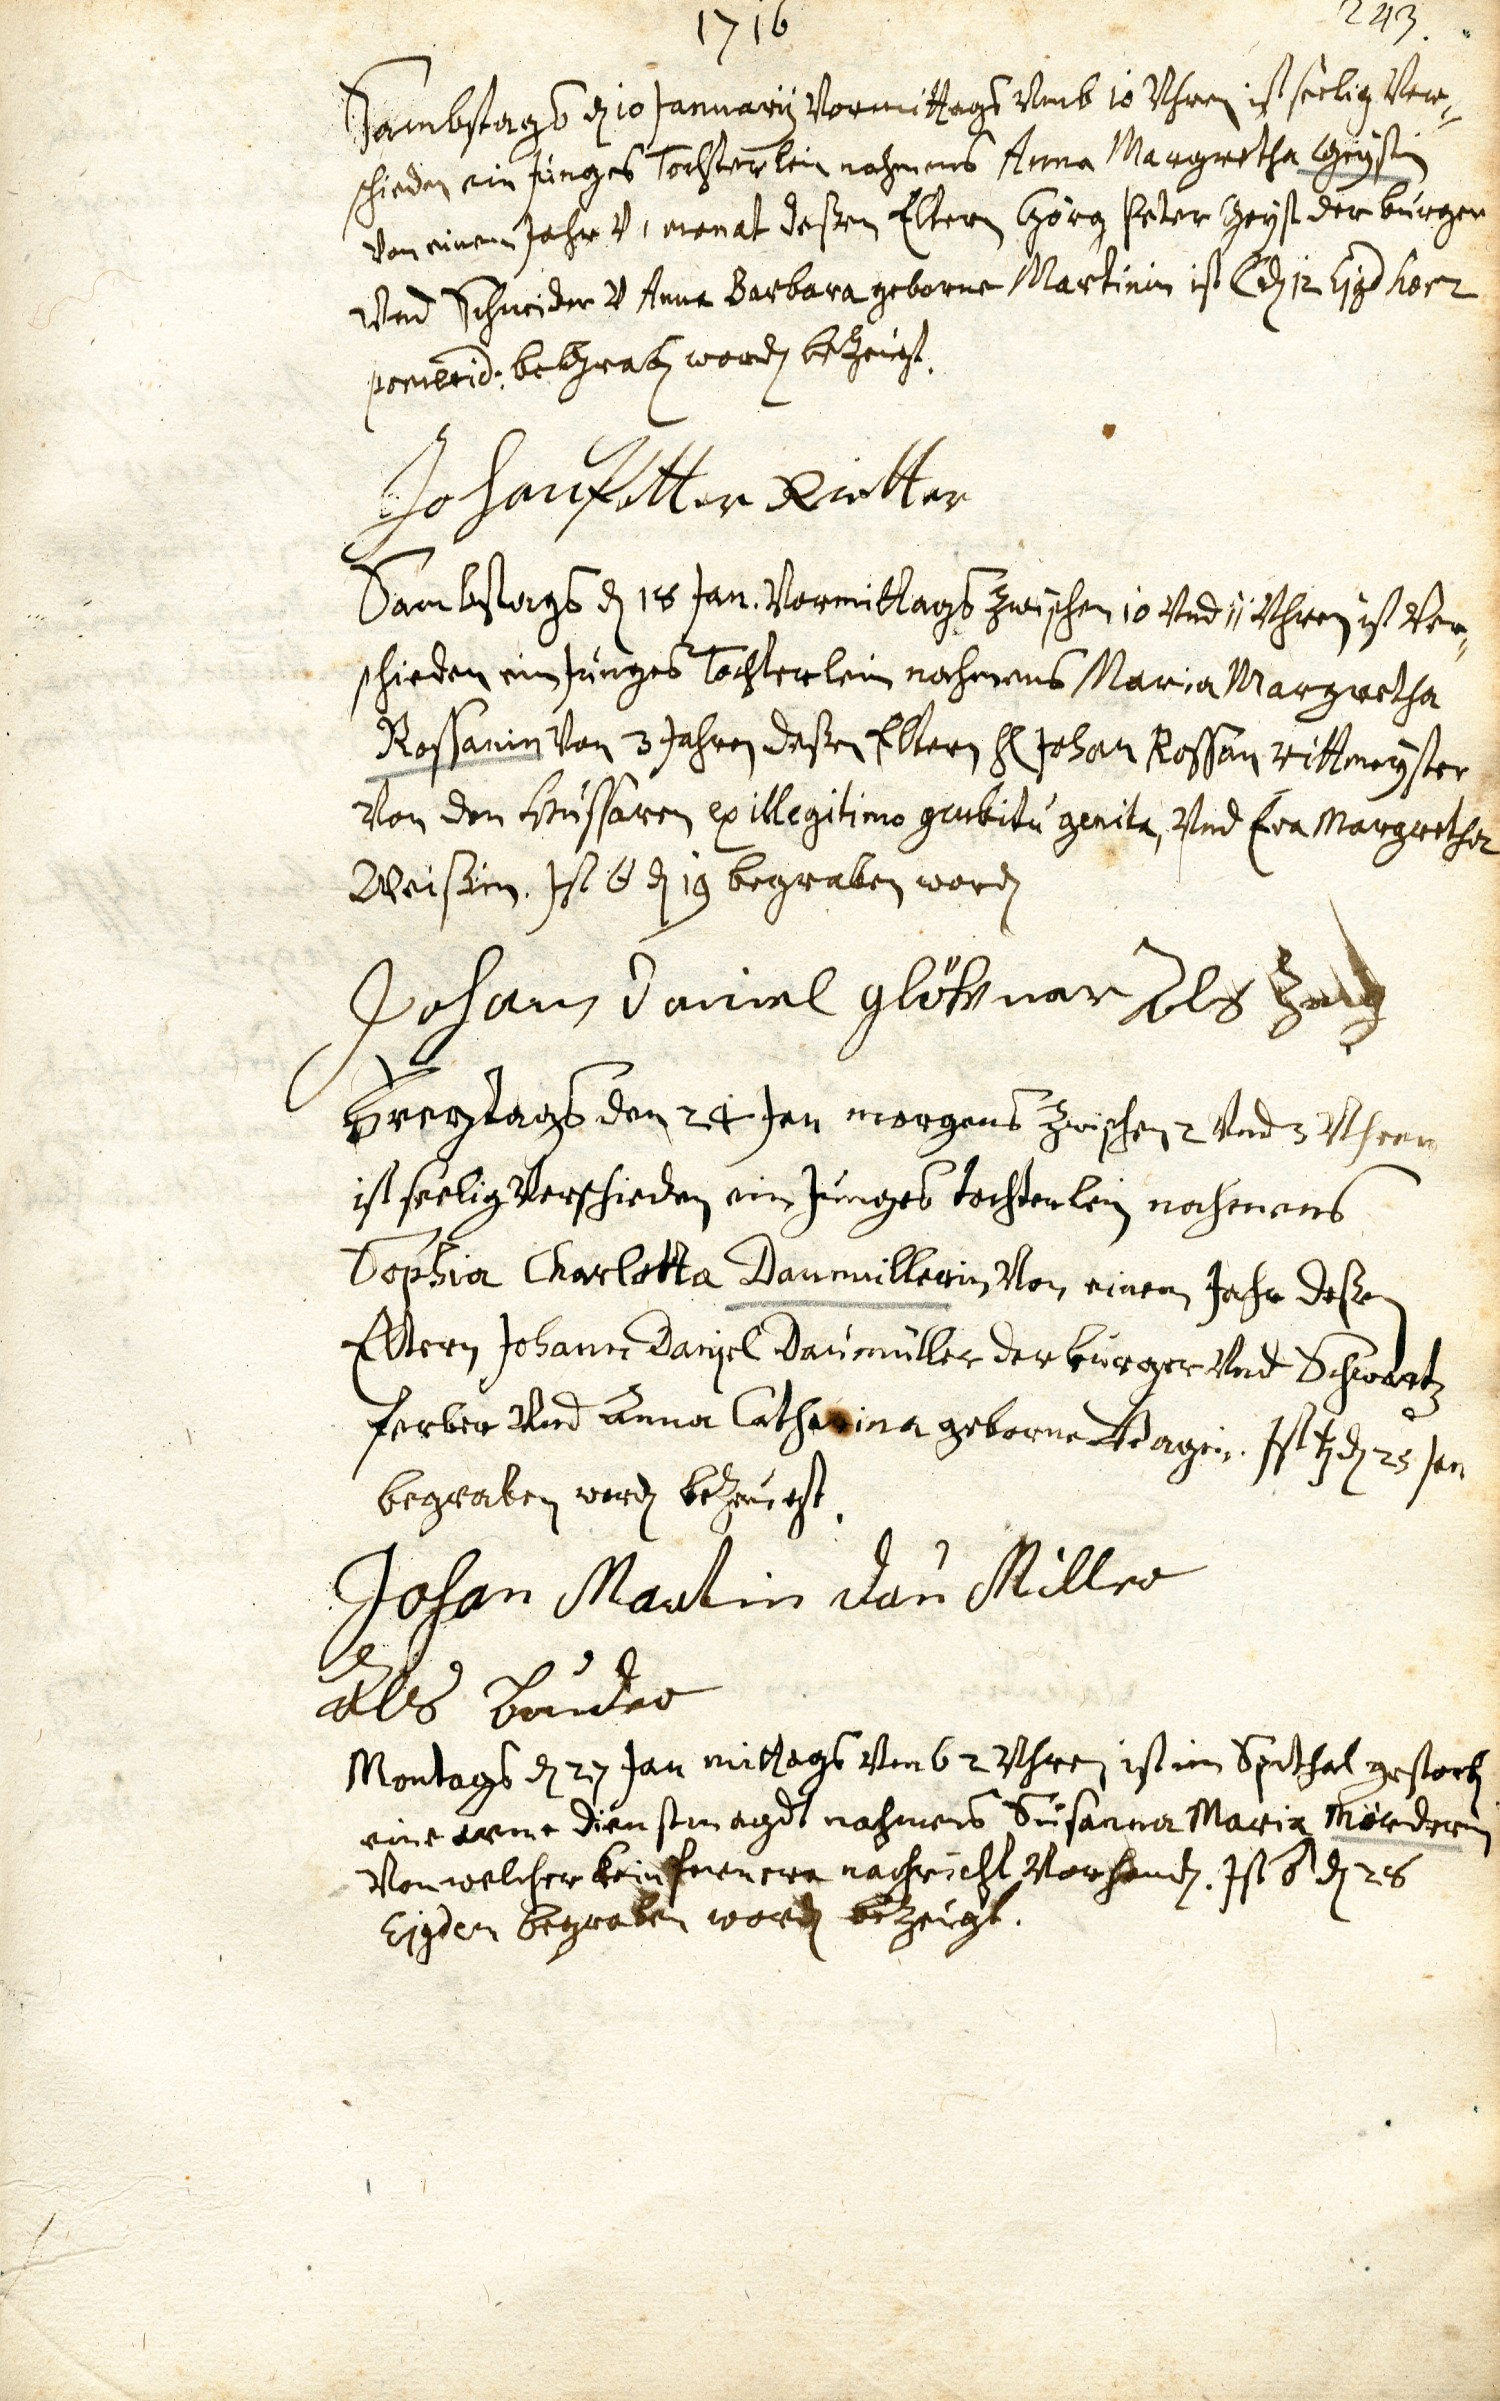 1716
243.
Sambstags d 10 Januarij Vormittags Umb 10 Uhren ist seelig Ver=
schieden ein junges Tochterlein nahmens Anna Margretha Geystin
Von einem Jahr V 1 monat deßen Eltern Görg Peter Geyst der burger
Und Schneider V Anna Barbara geborne Martinin ist d 12 Ejgd hor 2
pomerid: begraben word bezeügt.
Johan Petter Ritter
Sambstags d 18 Jan. Vormittags zwischen 10 Und 11 Uhren ist Ver=
schieden ein junges Tochterlein nahmens Maria Margretha
Rossanin Von 3 Jahren deßen Eltern H Johan Rossan rittmeyster
Von den Hussaren ex illegitimo genita, Und Eva Margretha
Weißin. Ist d 19 begraben word
Johann Daniel glöttner Als Zeug
Freytags den 24 Jan morgens zwischen 2 Und 3 Uhren
ist seelig Verschieden ein junges tochterlein nahmens
Sophia Charlotta Daumüllerin Von einem Jahr deßen
Eltern Johann Daniel Daumüller der burger Und Schwartz
ferber Und Anna Catharina geborne Ist d 25 Jan
begraben word bezeügt.
Johan Martin Dau Miller
Als bruder
Montags d 27 Jan mittags Umb 2 Uhren ist im Spithal gestorb
eine arme dienstmagdt nahmens Susanna Maria Mörderin
Von welcher kein fernere nachricht Vorhand. Ist d 28
Ejgden begraben word bezeügt.